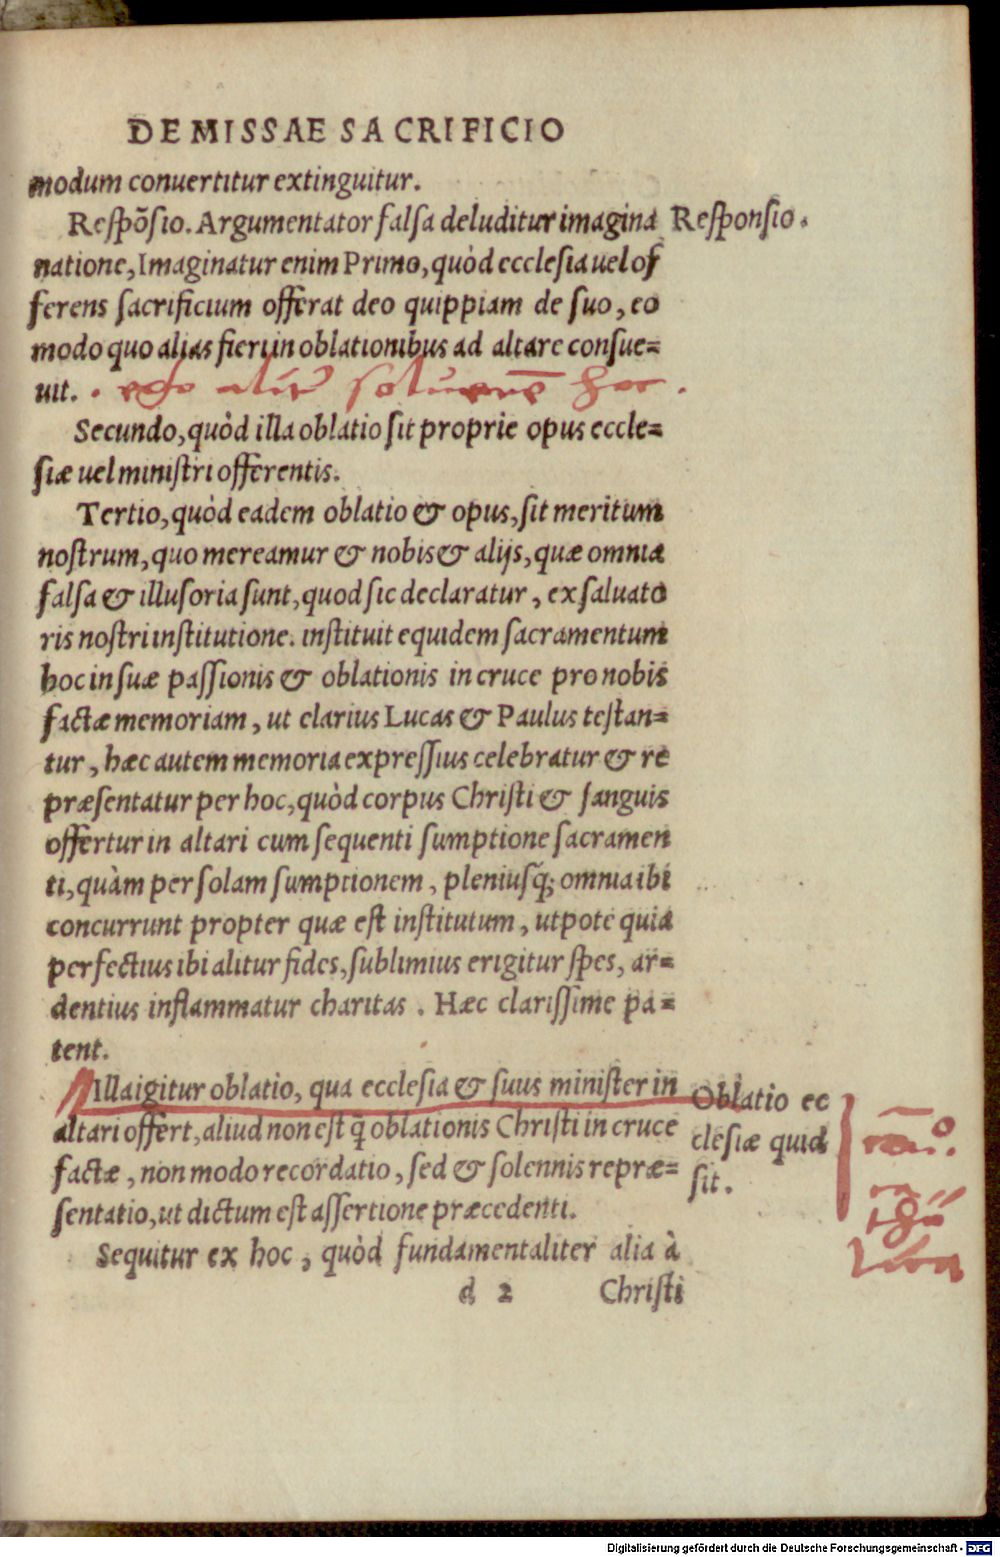 DE MISSAE SACRIFICIO
modum conuertitur extinguitur.
Respõsio. Argumentator falsa deluditur imagina
Responsio.
natione, Imaginatur enim Primo, quòd ecclesia uel of
ferens sacrificium offerat deo quippiam de suo, eo
modo quo alias fieri in oblationibus ad altare consue=
uit.
Secundo, quòd illa oblatio sit proprie opus eccle=
siæ uel ministri offerentis.
Tertio, quòd eadem oblatio & opus, sit meritum
nostrum, quo mereamur & nobis & alijs, quæ omnia
falsa & illusoria sunt, quod sic declaratur, ex saluato
ris nostri institutione. instituit equidem sacramentum
hoc in suæ passionis & oblationis in cruce pro nobis
factæ memoriam, ut clarius Lucas & Paulus testan=
tur, hæc autem memoria expressius celebratur & re
præsentatur per hoc, quòd corpus Christi & sanguis
offertur in altari cum sequenti sumptione sacramen
ti, quàm per solam sumptionem, pleniusq́; omnia ibi
concurrunt propter quæ est institutum, utpote quia
perfectius ibi alitur fides, sublimius erigitur spes, ar=
dentius inflammatur charitas. Hæc clarissime pa=
tent.
Illa igitur oblatio, qua ecclesia & suus minister in
altari offert, aliud non est q̃ oblationis Christi in cruce
factæ, non modo recordatio, sed & solennis repræ=
sentatio, ut dictum est assertione præcedenti.
Oblatio ec
clesiæ quid
sit.
Sequitur ex hoc, quòd fundamentaliter alia à
d 2 Christi
Digitalisierung gefördert durch die Deutsche Forschungsgemeinschaft - DFG